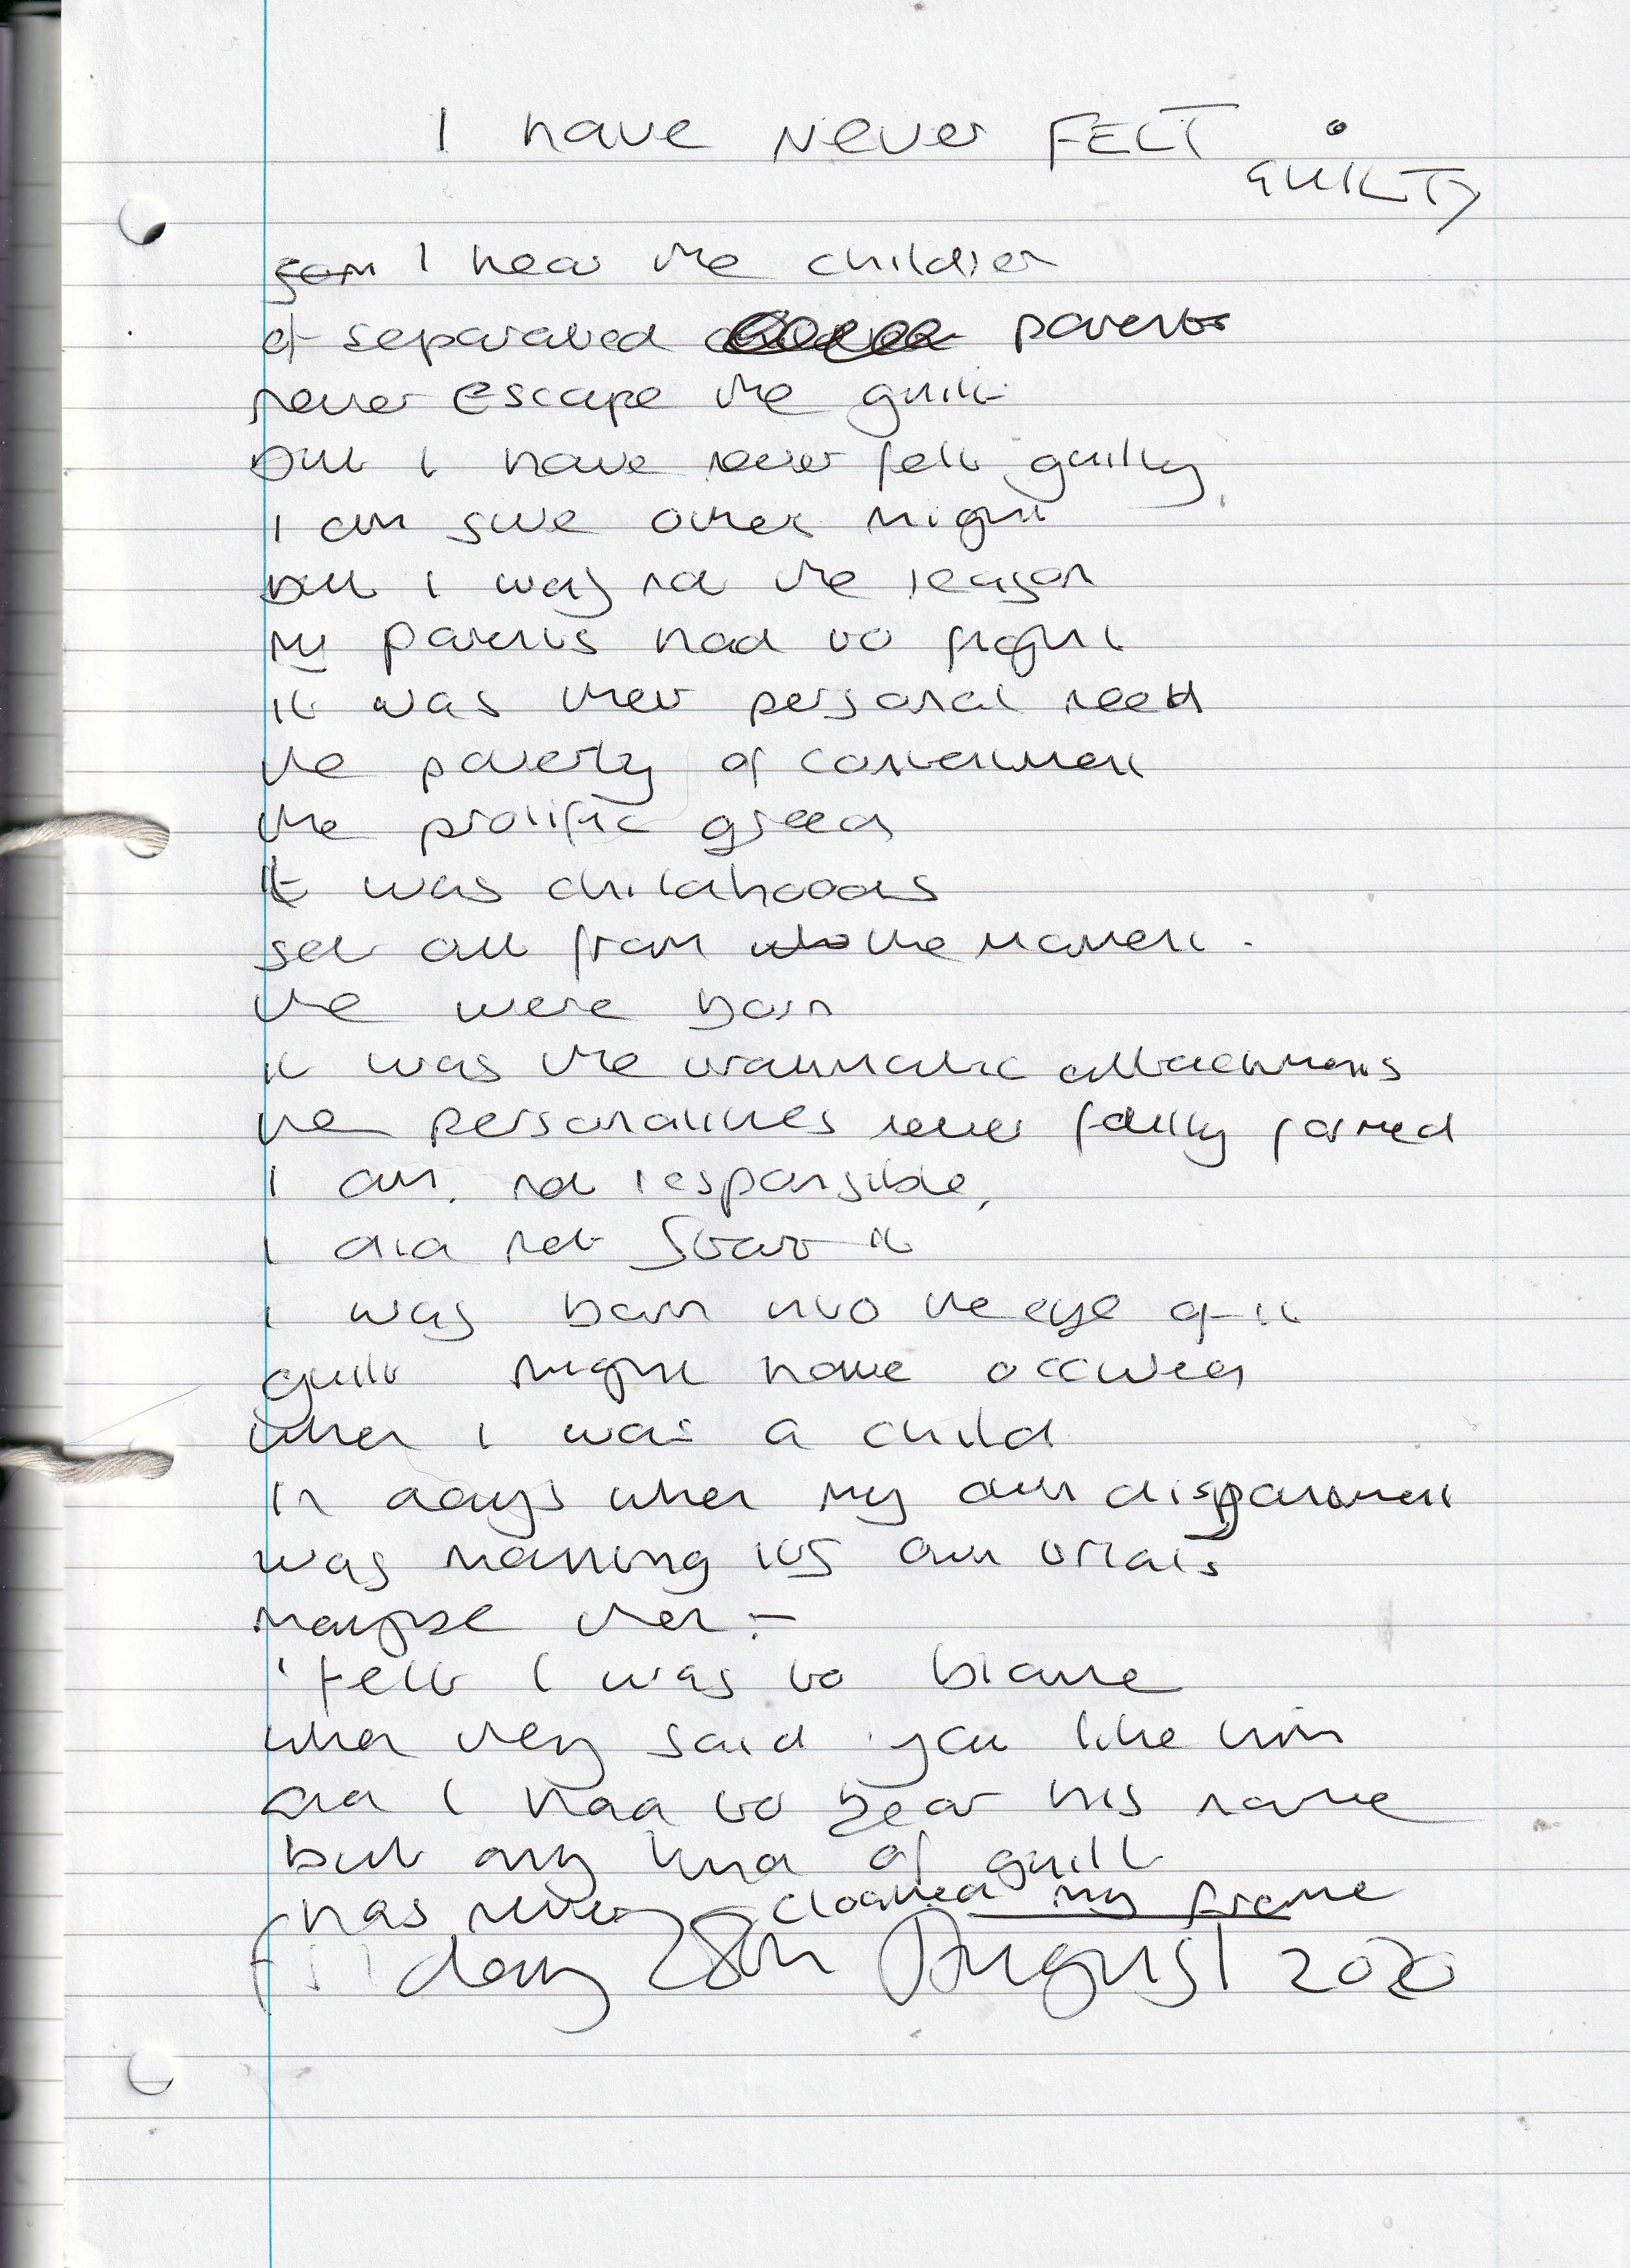 I have Never FELT
GUILTY
I hear the children
of separated parents
never escape the guilt
but I have never felt guilty
I am sure others might
but I was not the reason
my parents had to fight
it was their personal need
the poverty of contentment
the prolific greed
It was childhoods
set out from the moment
the were born
it was the traumatic attachments
the personalities never fully formed
I am not responsible,
I did not start it
I was born into the eye of it
guilt might have occured
when I was a child
In days when my own
was its own trials
maybe then -
I felt I was to blame
when they said you like him
and I had to bear his name
but any kind of guilt
has never cloaked my frame
Friday 28th August 2020